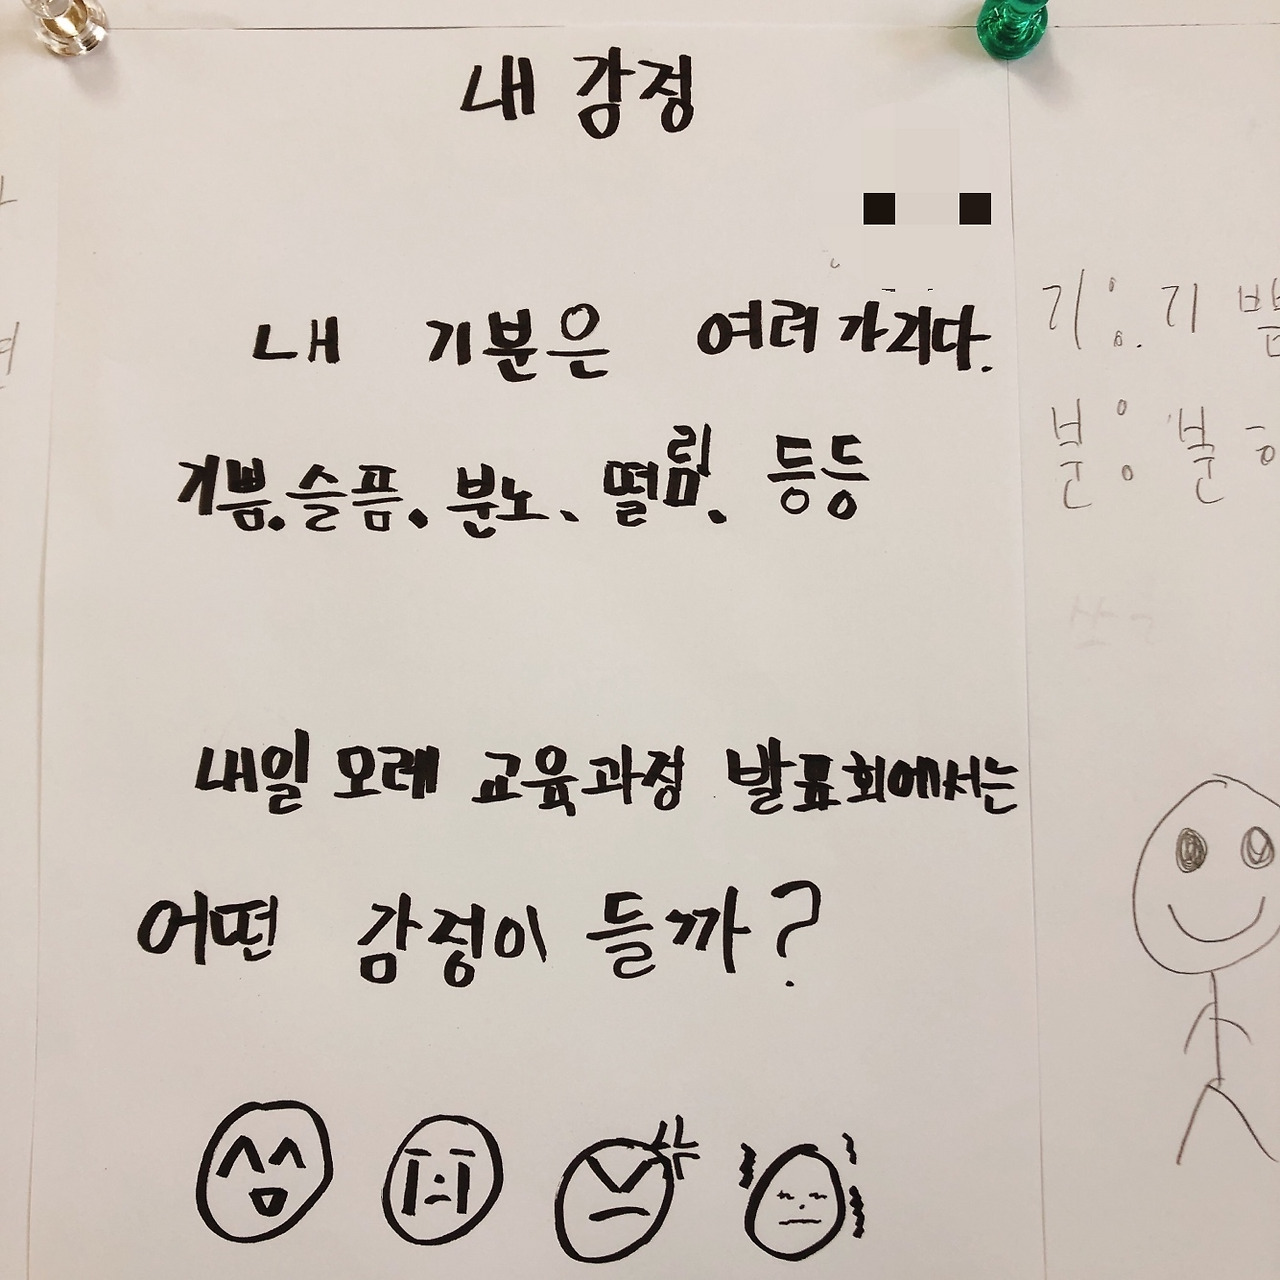 내 감정
내 기분은 여러 가지다.
기쁨. 슬픔. 분노、 떨림. 등등
내일 모레 교육과정 발표회에서는
어떤 감정이 들까?
기: 기
분: 분